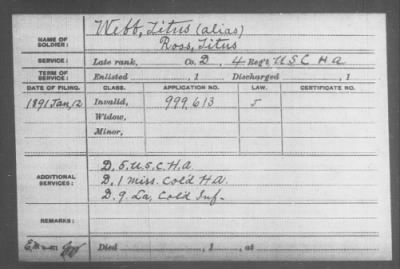 NAME OF SOLDIER: Webb, Titus (alias)
Ross, Titus
SERVICE: Late rank, Co. D, 4 Reg't U S C H A
TERM OF SERVICE: Enlisted , 1 Discharged , 1
DATE OF FILING. CLASS. APPLICATION NO. LAW. CERTIFICATE NO.
1891 Jan, 12 Invalid, 999,613 J
Widow,
Minor,
ADDITIONAL SERVICES: D. 5 U.S.C.H.A.
D. 1 Miss. Cold H A.
D. 9. La, Cold Inf.
REMARKS:
Died , 1 , at